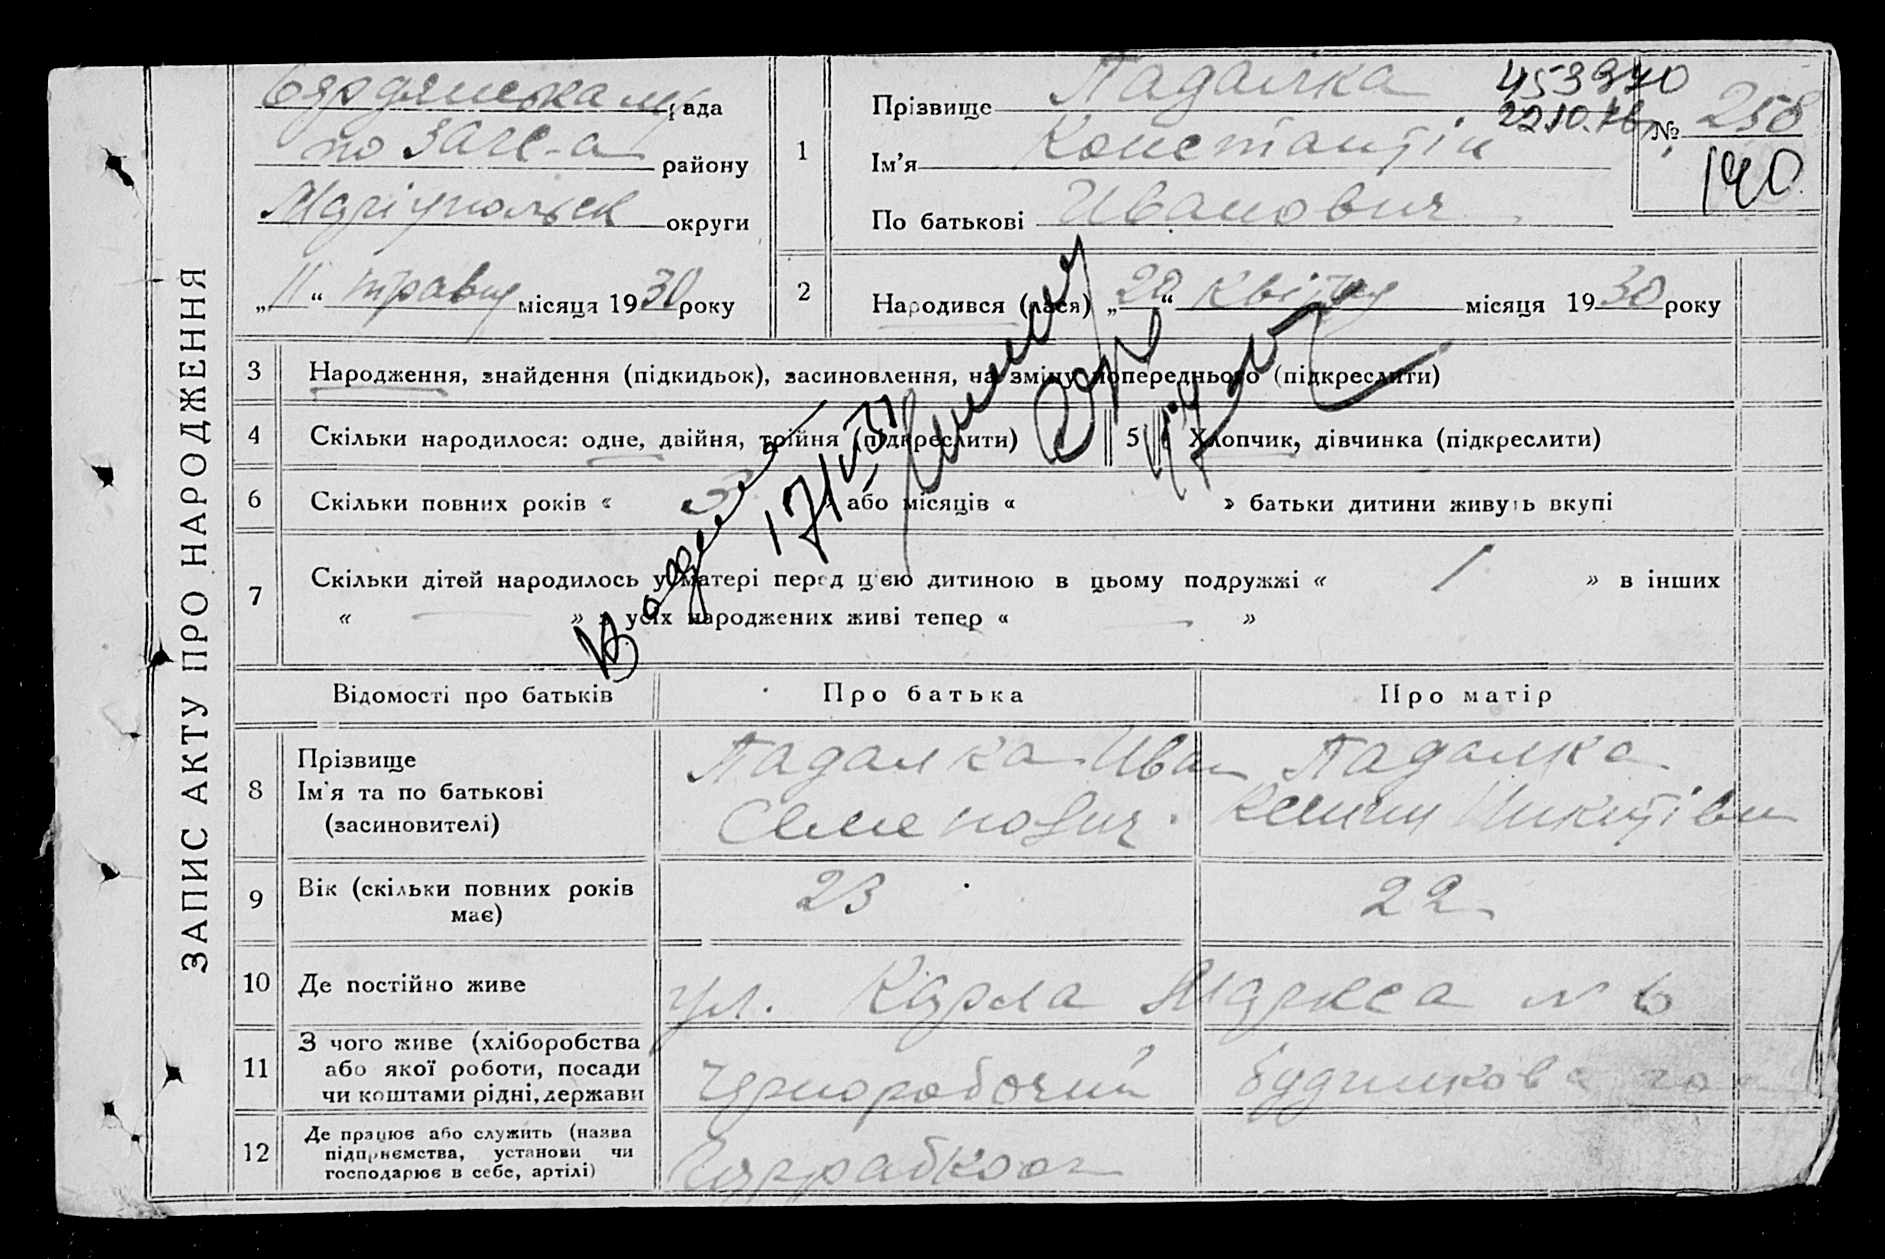 ЗАПИС АКТУ ПРО НАРОДЖЕННЯ
Бердянська м рада
по ЗАГС-а району
Маріупольск округи
„ 11 “ травня місяця 1930 року
1
Прізвище Падалка
Ім’я Константін
По батькові Иванович
453970
22.10.
№ 258
190
2
Народився (лася) „ 20 “ квітня місяця 1930 року
3 Народження, знайдення (підкидьок), засиновлення, на зміну попереднього (підкреслити)
4 Скільки народилося: одне, двійня, трійня (підкреслити)
5 Хлопчик, дівчинка (підкреслити)
6 Скільки повних років « 3 » або місяців « » батьки дитини живуть вкупі
7 Скільки дітей народилось у матері перед цією дитиною в цьому подружжі « / » в інших
« — » з усіх народжених живі тепер « — »
Відомості про батьків
Про батька
Про матір
8
Прізвище
Ім’я та по батькові
(засиновителі)
Падалка Иван
Семенович.
Падалка
Ксения Никитівн
9 Вік (скільки повних років
має)
23
22
10 Де постійно живе
ул. Карла Маркса № 6
11 З чого живе (хліборобства
або якої роботи, посади
чи коштами рідні, держави
Чернорабочий
12 Де працює або служить (назва
підприємства, установи чи
господарює в себе, артілі)